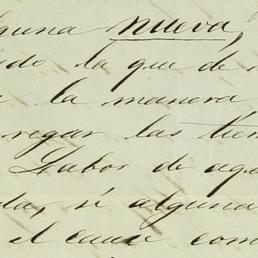 guna nueva,
do la que de
la manera
regar las tier
Labor de aqu
da, si alguna
el cauce com